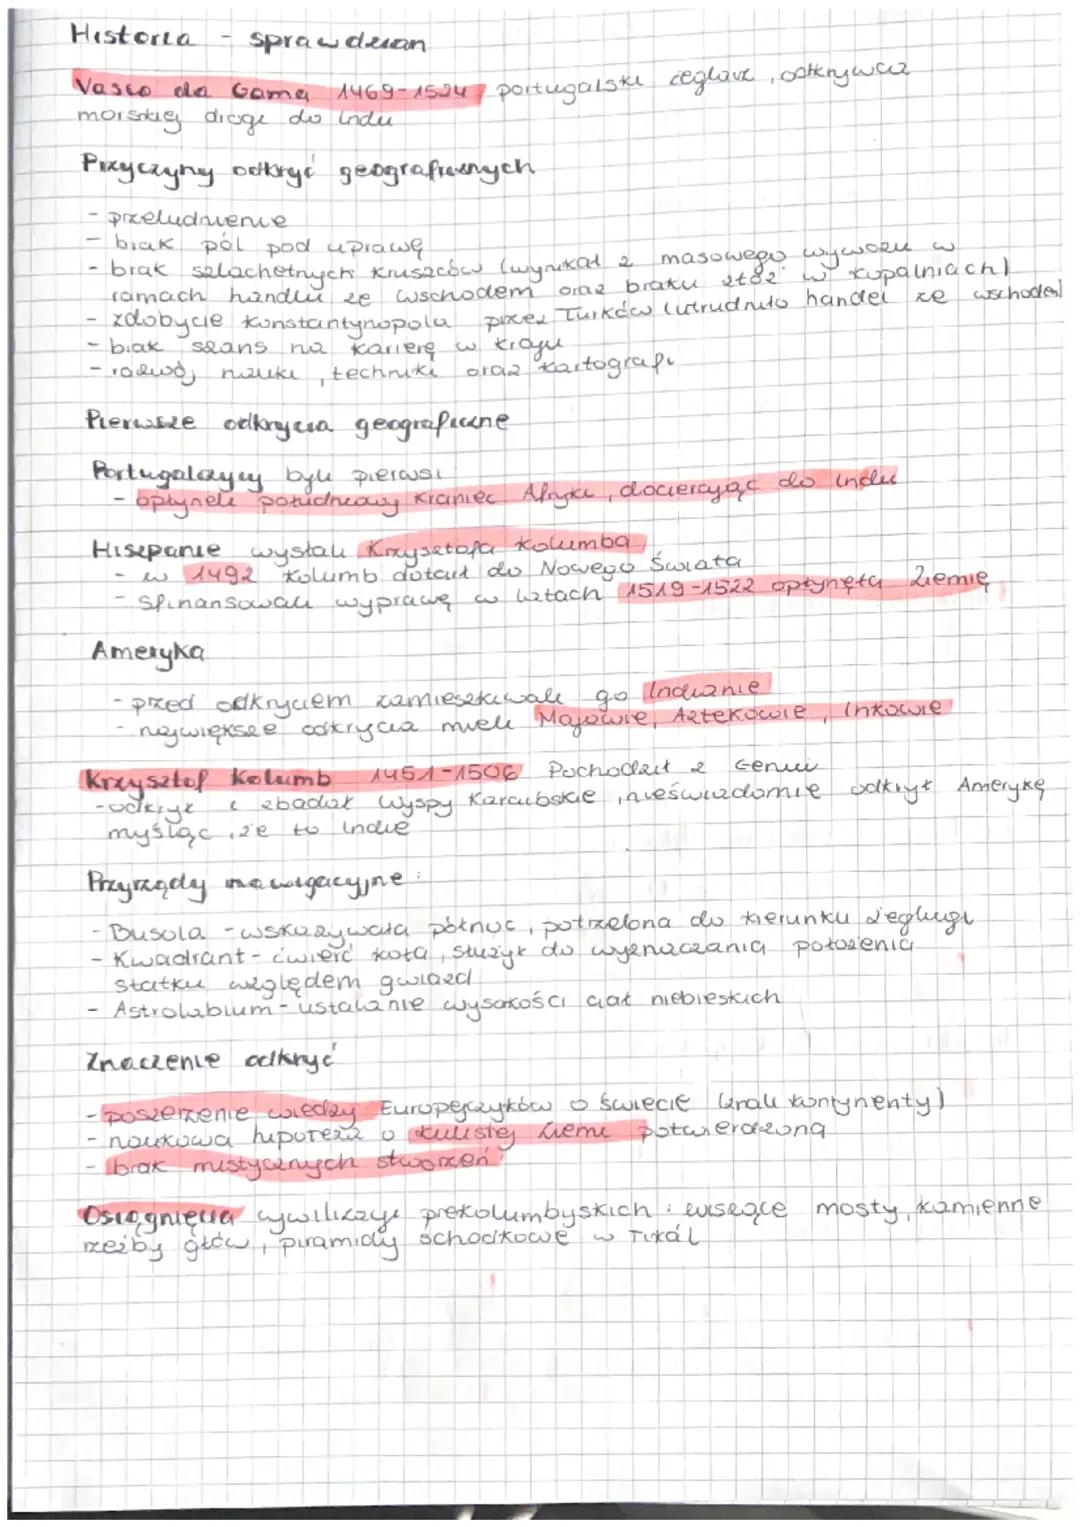 Historia - sprawdzian
Vasco da Gama 1469-1524 portugalski żeglarz, odkrywca
morskiej drogi do Indii
Przyczyny odkryć geograficznych
- przeludnienie
- brak pól pod uprawę
- brak szlachetnych kruszców (wynikał z masowego wywozu w
ramach handlu ze wschodem oraz braku złóż w kopalniach)
- zdobycie Konstantynopola przez Turków (utrudniło handel ze wschodem)
- brak szans na karierę w kraju
- rozwój nauki, techniki oraz kartografi
Pierwsze odkrycia geograficzne
Portugalczycy byli pierwsi
- opłyneli południowy kraniec Afryki, docierając do Indii
Hiszpanie wysłali Krzysztofa Kolumba
- w 1492 Kolumb dotarł do Nowego Świata
- sfinansowali wyprawę w latach 1519-1522 opłynęła Ziemię
Ameryka
- przed odkryciem zamieszkiwali go Indianie
- największe odkrycia mieli Majowie, Aztekowie, Inkowie
Krzysztof Kolumb 1451-1506 Pochodził z Genui
- odkrył i zbadał wyspy Karaibskie, nieświadomie odkrył Amerykę
myśląc, że to Indie
Przyrządy nawigacyjne:
- Busola - wskazywała północ, potrzebna do kierunku żeglugi
- Kwadrant - ćwierć koła, służył do wyznaczania położenia
statku względem gwiazd
- Astrolabium - ustalanie wysokości ciał niebieskich
Znaczenie odkryć
- poszerzenie wiedzy Europejczyków o świecie (znali kontynenty)
- naukowa hipoteza o kulistej Ziemi potwierdzona
- brak mistycznych stworzeń
Osiągnięcia cywilizacji prekolumbyjskich: wiszące mosty, kamienne
rzeźby głów, piramidy schodkowe w Tikál